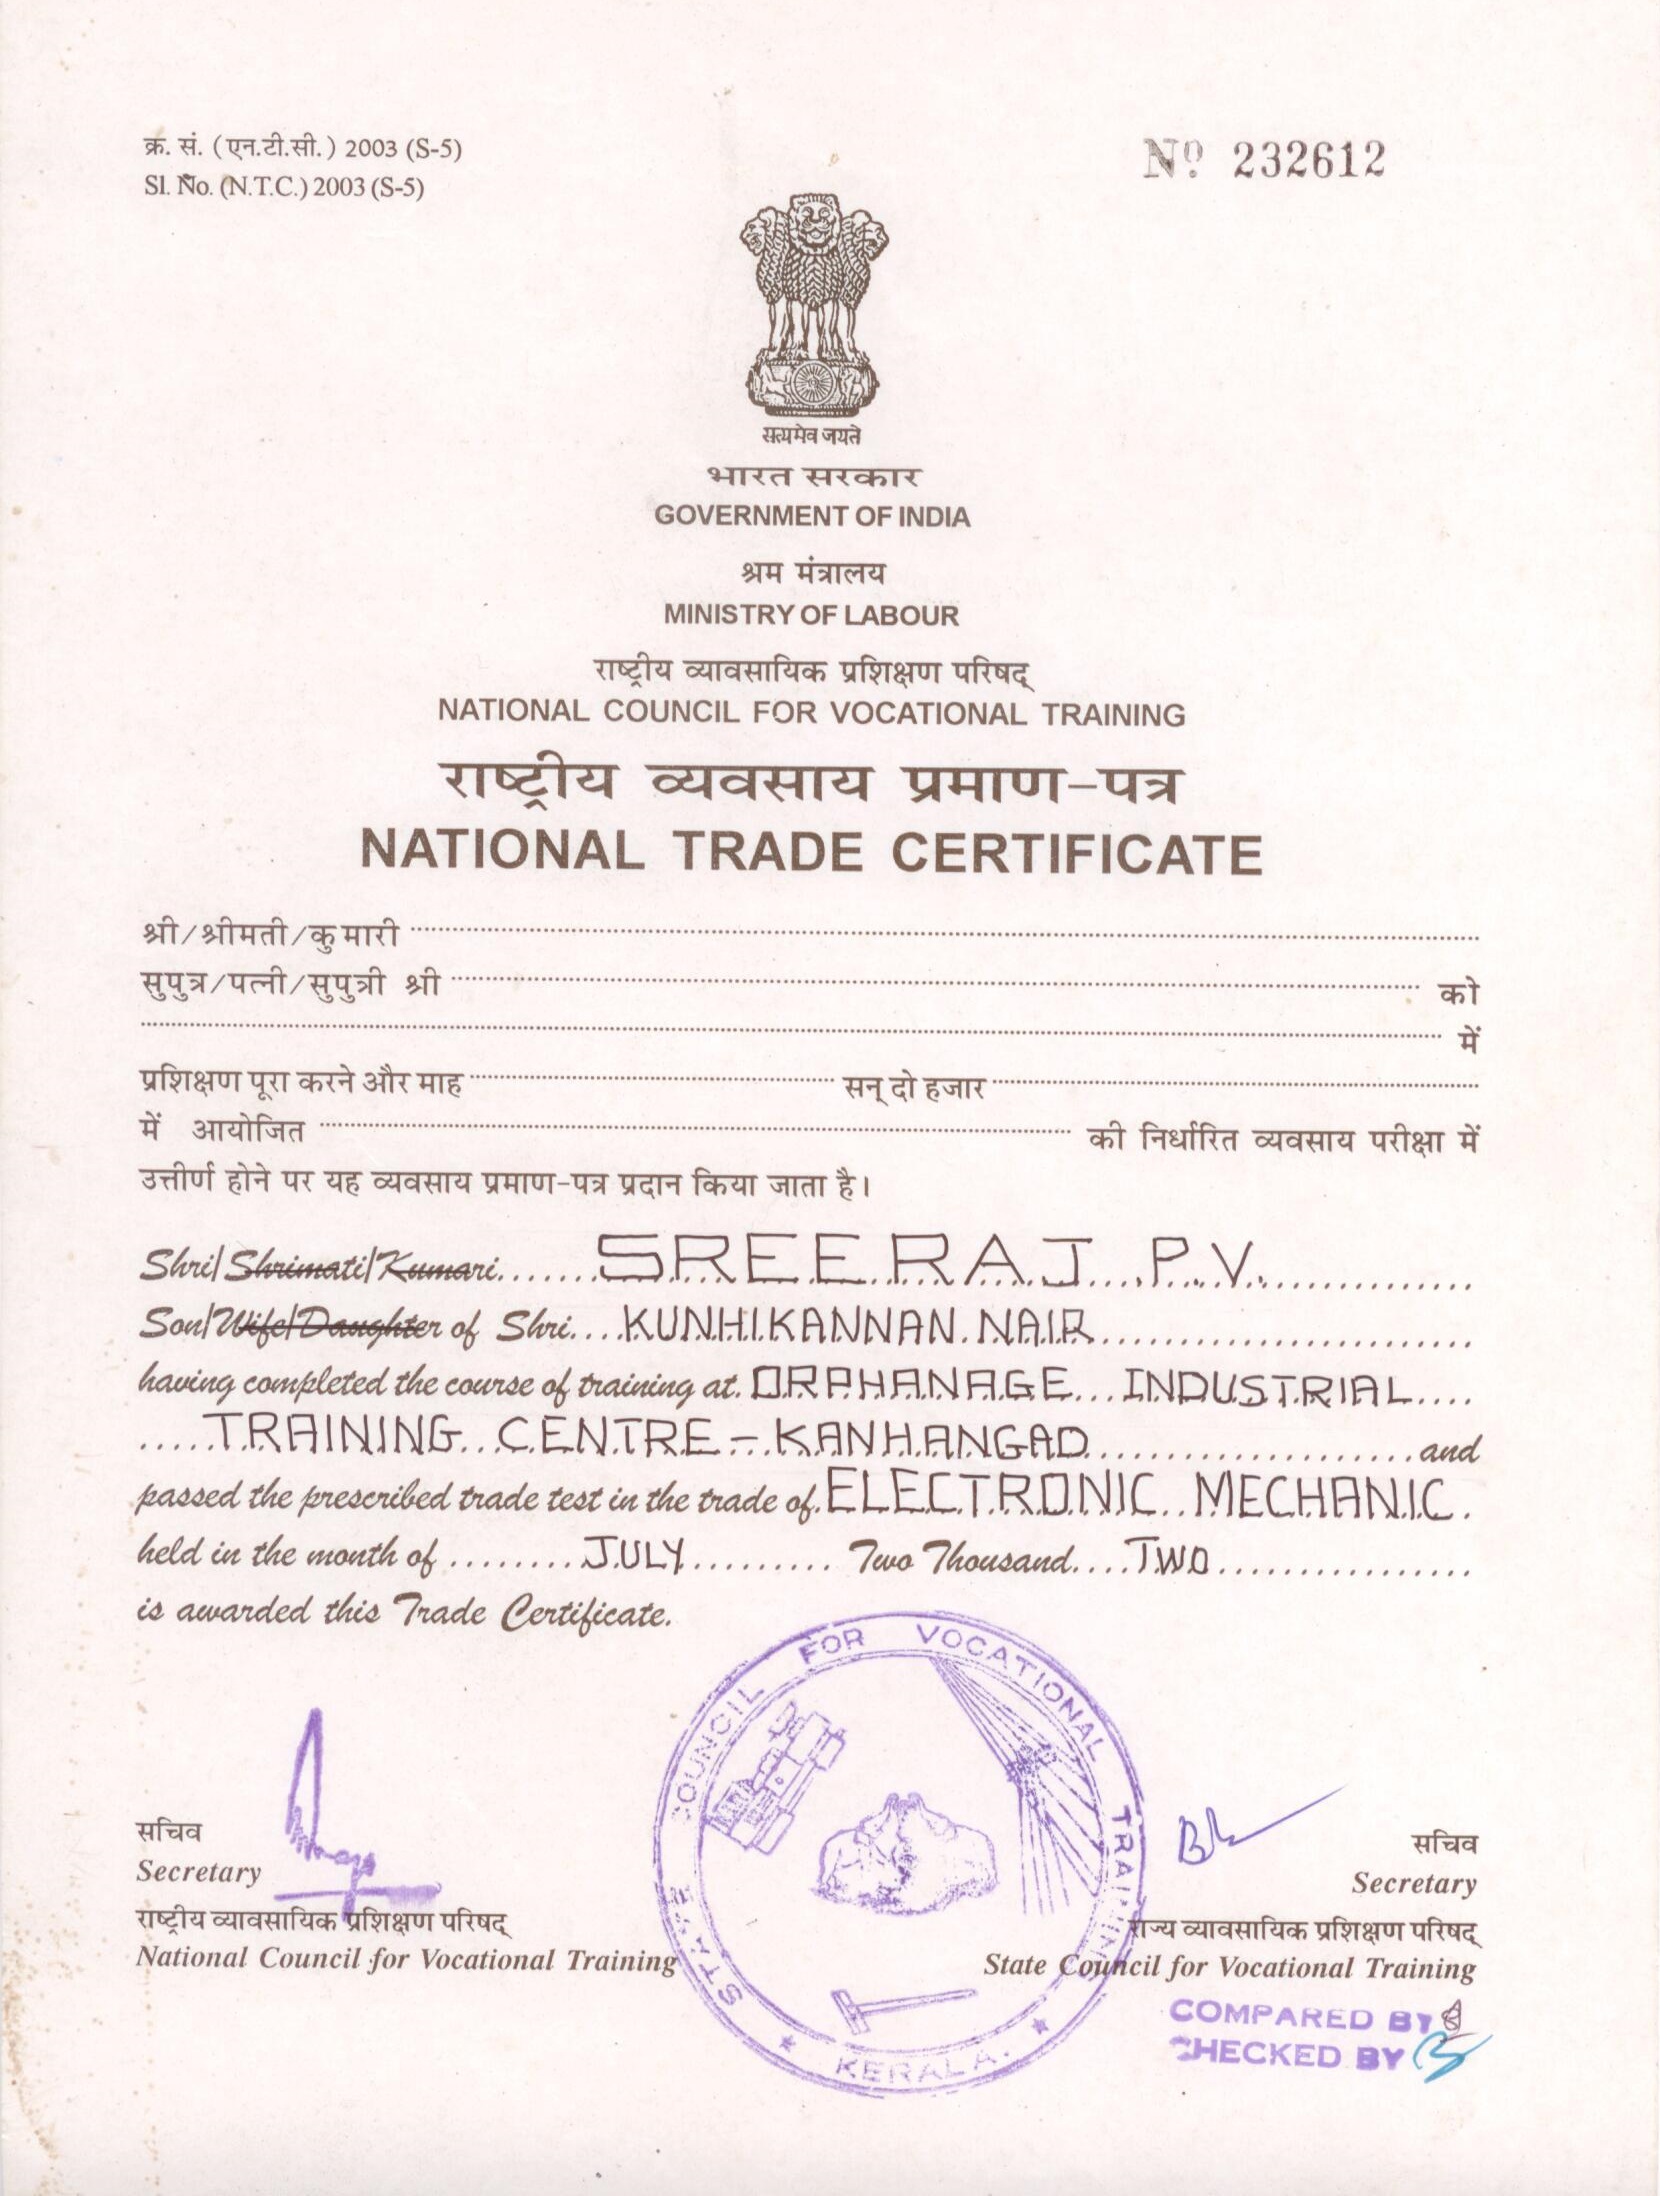 क्र. सं. (एन.टी.सी.) 2003 (S-5)
Sl. No. (N.T.C.) 2003 (S-5)
Nº 232612
सत्यमेव जयते
भारत सरकार
GOVERNMENT OF INDIA
श्रम मंत्रालय
MINISTRY OF LABOUR
राष्ट्रीय व्यावसायिक प्रशिक्षण परिषद्
NATIONAL COUNCIL FOR VOCATIONAL TRAINING
राष्ट्रीय व्यवसाय प्रमाण-पत्र
NATIONAL TRADE CERTIFICATE
श्री/श्रीमती/कुमारी
सुपुत्र/पत्नी/सुपुत्री श्री को
में
प्रशिक्षण पूरा करने और माह सन् दो हजार
में आयोजित की निर्धारित व्यवसाय परीक्षा में
उत्तीर्ण होने पर यह व्यवसाय प्रमाण-पत्र प्रदान किया जाता है।
Shri/Shrimati/Kumari SREERAJ P.V.
Son/Wife/Daughter of Shri KUNHIKANNAN NAIR
having completed the course of training at ORPHANAGE INDUSTRIAL
TRAINING CENTRE - KANHANGAD and
passed the prescribed trade test in the trade of ELECTRONIC MECHANIC
held in the month of JULY Two Thousand TWO
is awarded this Trade Certificate.
STATE COUNCIL FOR VOCATIONAL TRAINING
KERALA.
सचिव
Secretary
राष्ट्रीय व्यावसायिक प्रशिक्षण परिषद्
National Council for Vocational Training
सचिव
Secretary
राज्य व्यावसायिक प्रशिक्षण परिषद्
State Council for Vocational Training
COMPARED BY
CHECKED BY